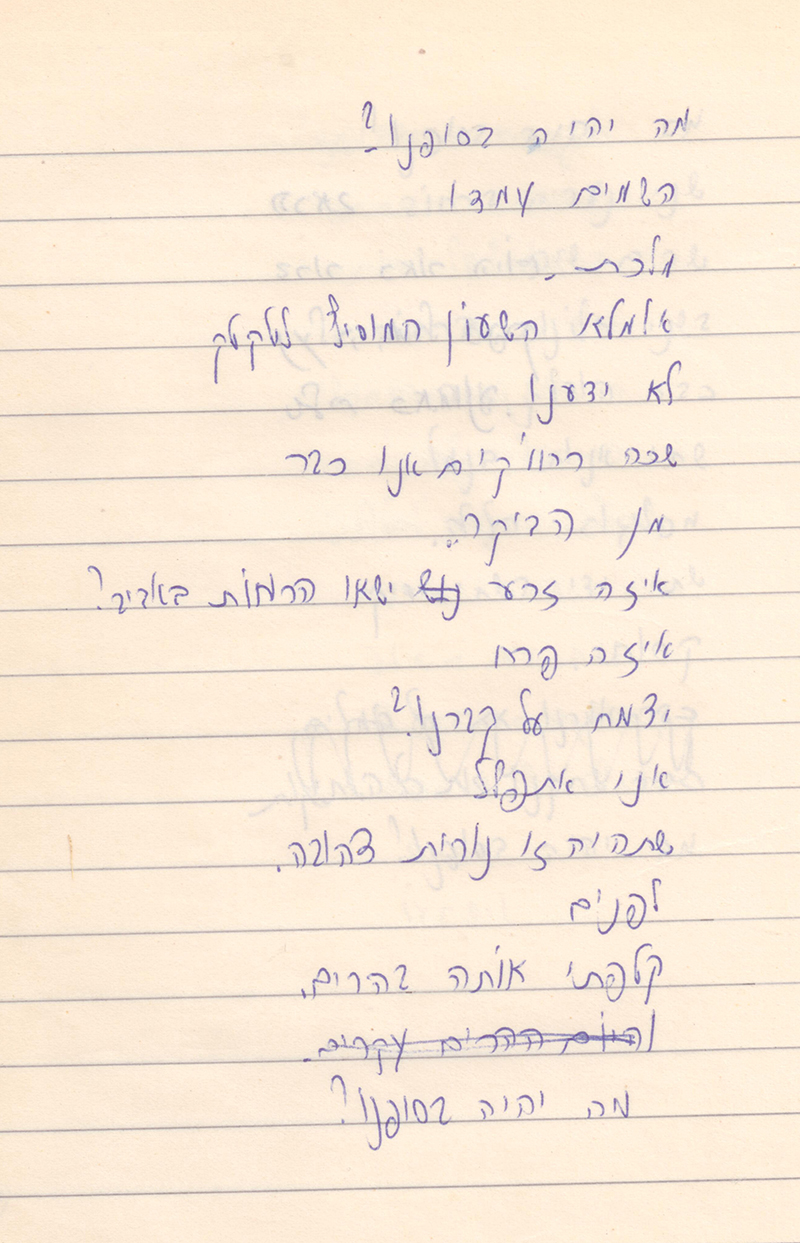 מה יהיה בסופנו?
השמים עמדו
מלכת.
אלמלא השעון המוסיף לטקטק
לא ידענו
שכה רחוקים אנו כבר
מן הביקר.
איזה זרע ישאו הרוחות באביב?
איזה פרח
יצמח על קברנו?
אני אתפלל
שתהיה זו נורית צהובה.
לפנים
קטפתי אותה בהרים.
והיום ההרים עקרים.
מה יהיה בסופנו?